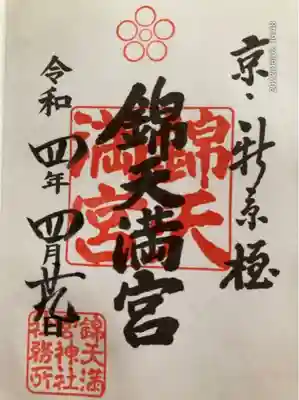 京・新京極
錦天満宮
錦天
満宮
令和四年四月廿九日
錦天満
宮神社
社務所